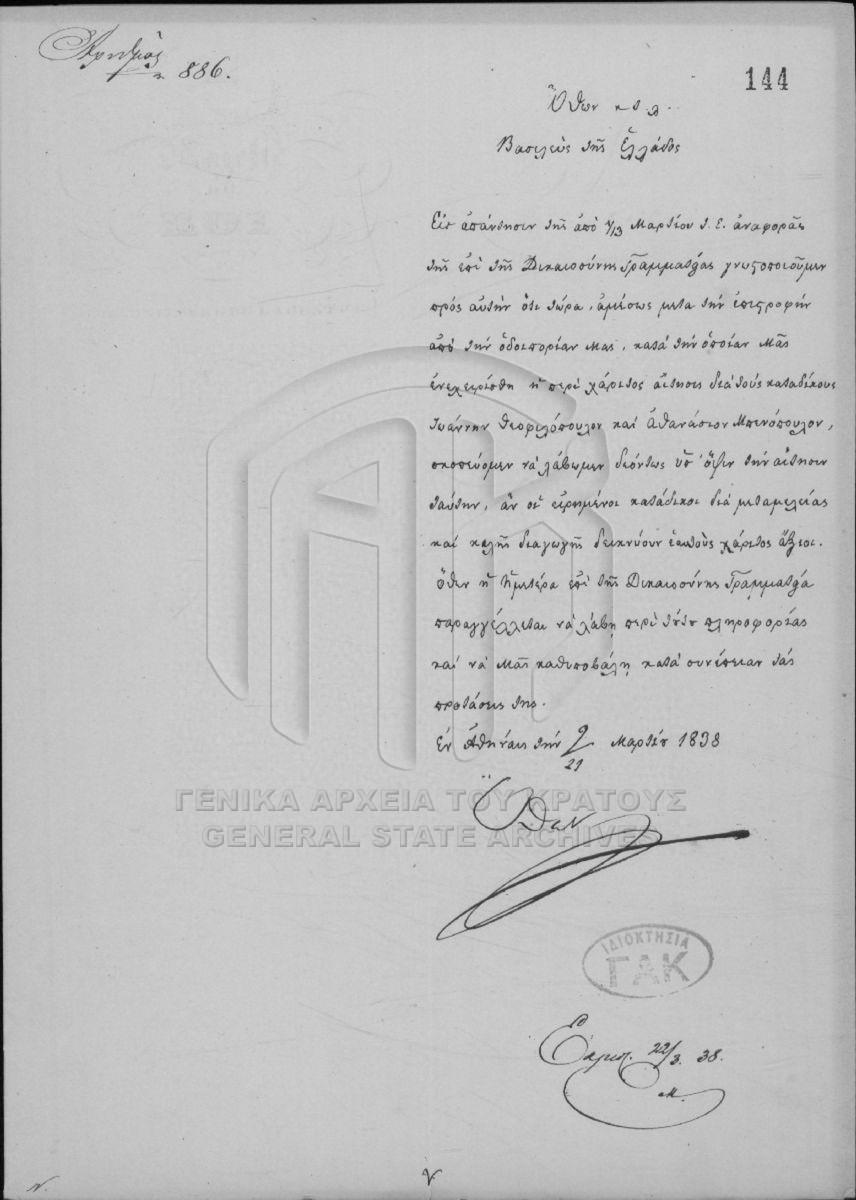 Ἀριθμὸς 886.
144
Ὄθων κ τ λ
Βασιλεὺς τῆς Ἑλλάδος
Εἰς ἀπάντησιν τῆς ἀπὸ 1/13 Μαρτίου τ. ἔ. ἀναφορᾶς
τῆς ἐπὶ τῆς Δικαιοσύνης Γραμματείας γνωστοποιοῦμεν
πρὸς αὐτὴν ὅτι τώρα, ἀμέσως μετὰ τὴν ἐπιστροφὴν
ἀπὸ τὴν ὁδοιπορίαν Μας, κατὰ τὴν ὁποίαν Μᾶς
ἐνεχειρίσθη ἡ περὶ χάριτος αἴτησις διὰ τοὺς καταδίκους
Ἰωάννην Θεοφιλόπουλον καὶ Ἀθανάσιον Μπενόπουλον,
σκοπεύομεν νὰ λάβωμεν δεόντως ὑπ' ὄψιν τὴν αἴτησιν
ταύτην, ἂν οἱ εἰρημένοι κατάδικοι διὰ μεταμελείας
καὶ καλῆς διαγωγῆς δεικνύουν ἑαυτοὺς χάριτος ἄξιοι.
Ὅθεν ἡ Ἡμετέρα ἐπὶ τῆς Δικαιοσύνης Γραμματεία
παραγγέλλεται νὰ λάβῃ περὶ τούτου πληροφορίας
καὶ νὰ Μᾶς καθυποβάλῃ κατὰ συνέπειαν τὰς
προτάσεις της.
Ἐν Ἀθήναις τὴν 9/21 Μαρτίου 1838
Ὄθων
ΓΕΝΙΚΑ ΑΡΧΕΙΑ ΤΟΥ ΚΡΑΤΟΥΣ
GENERAL STATE ARCHIVES
ΙΔΙΟΚΤΗΣΙΑ
ΓΑΚ
22/3. 38.